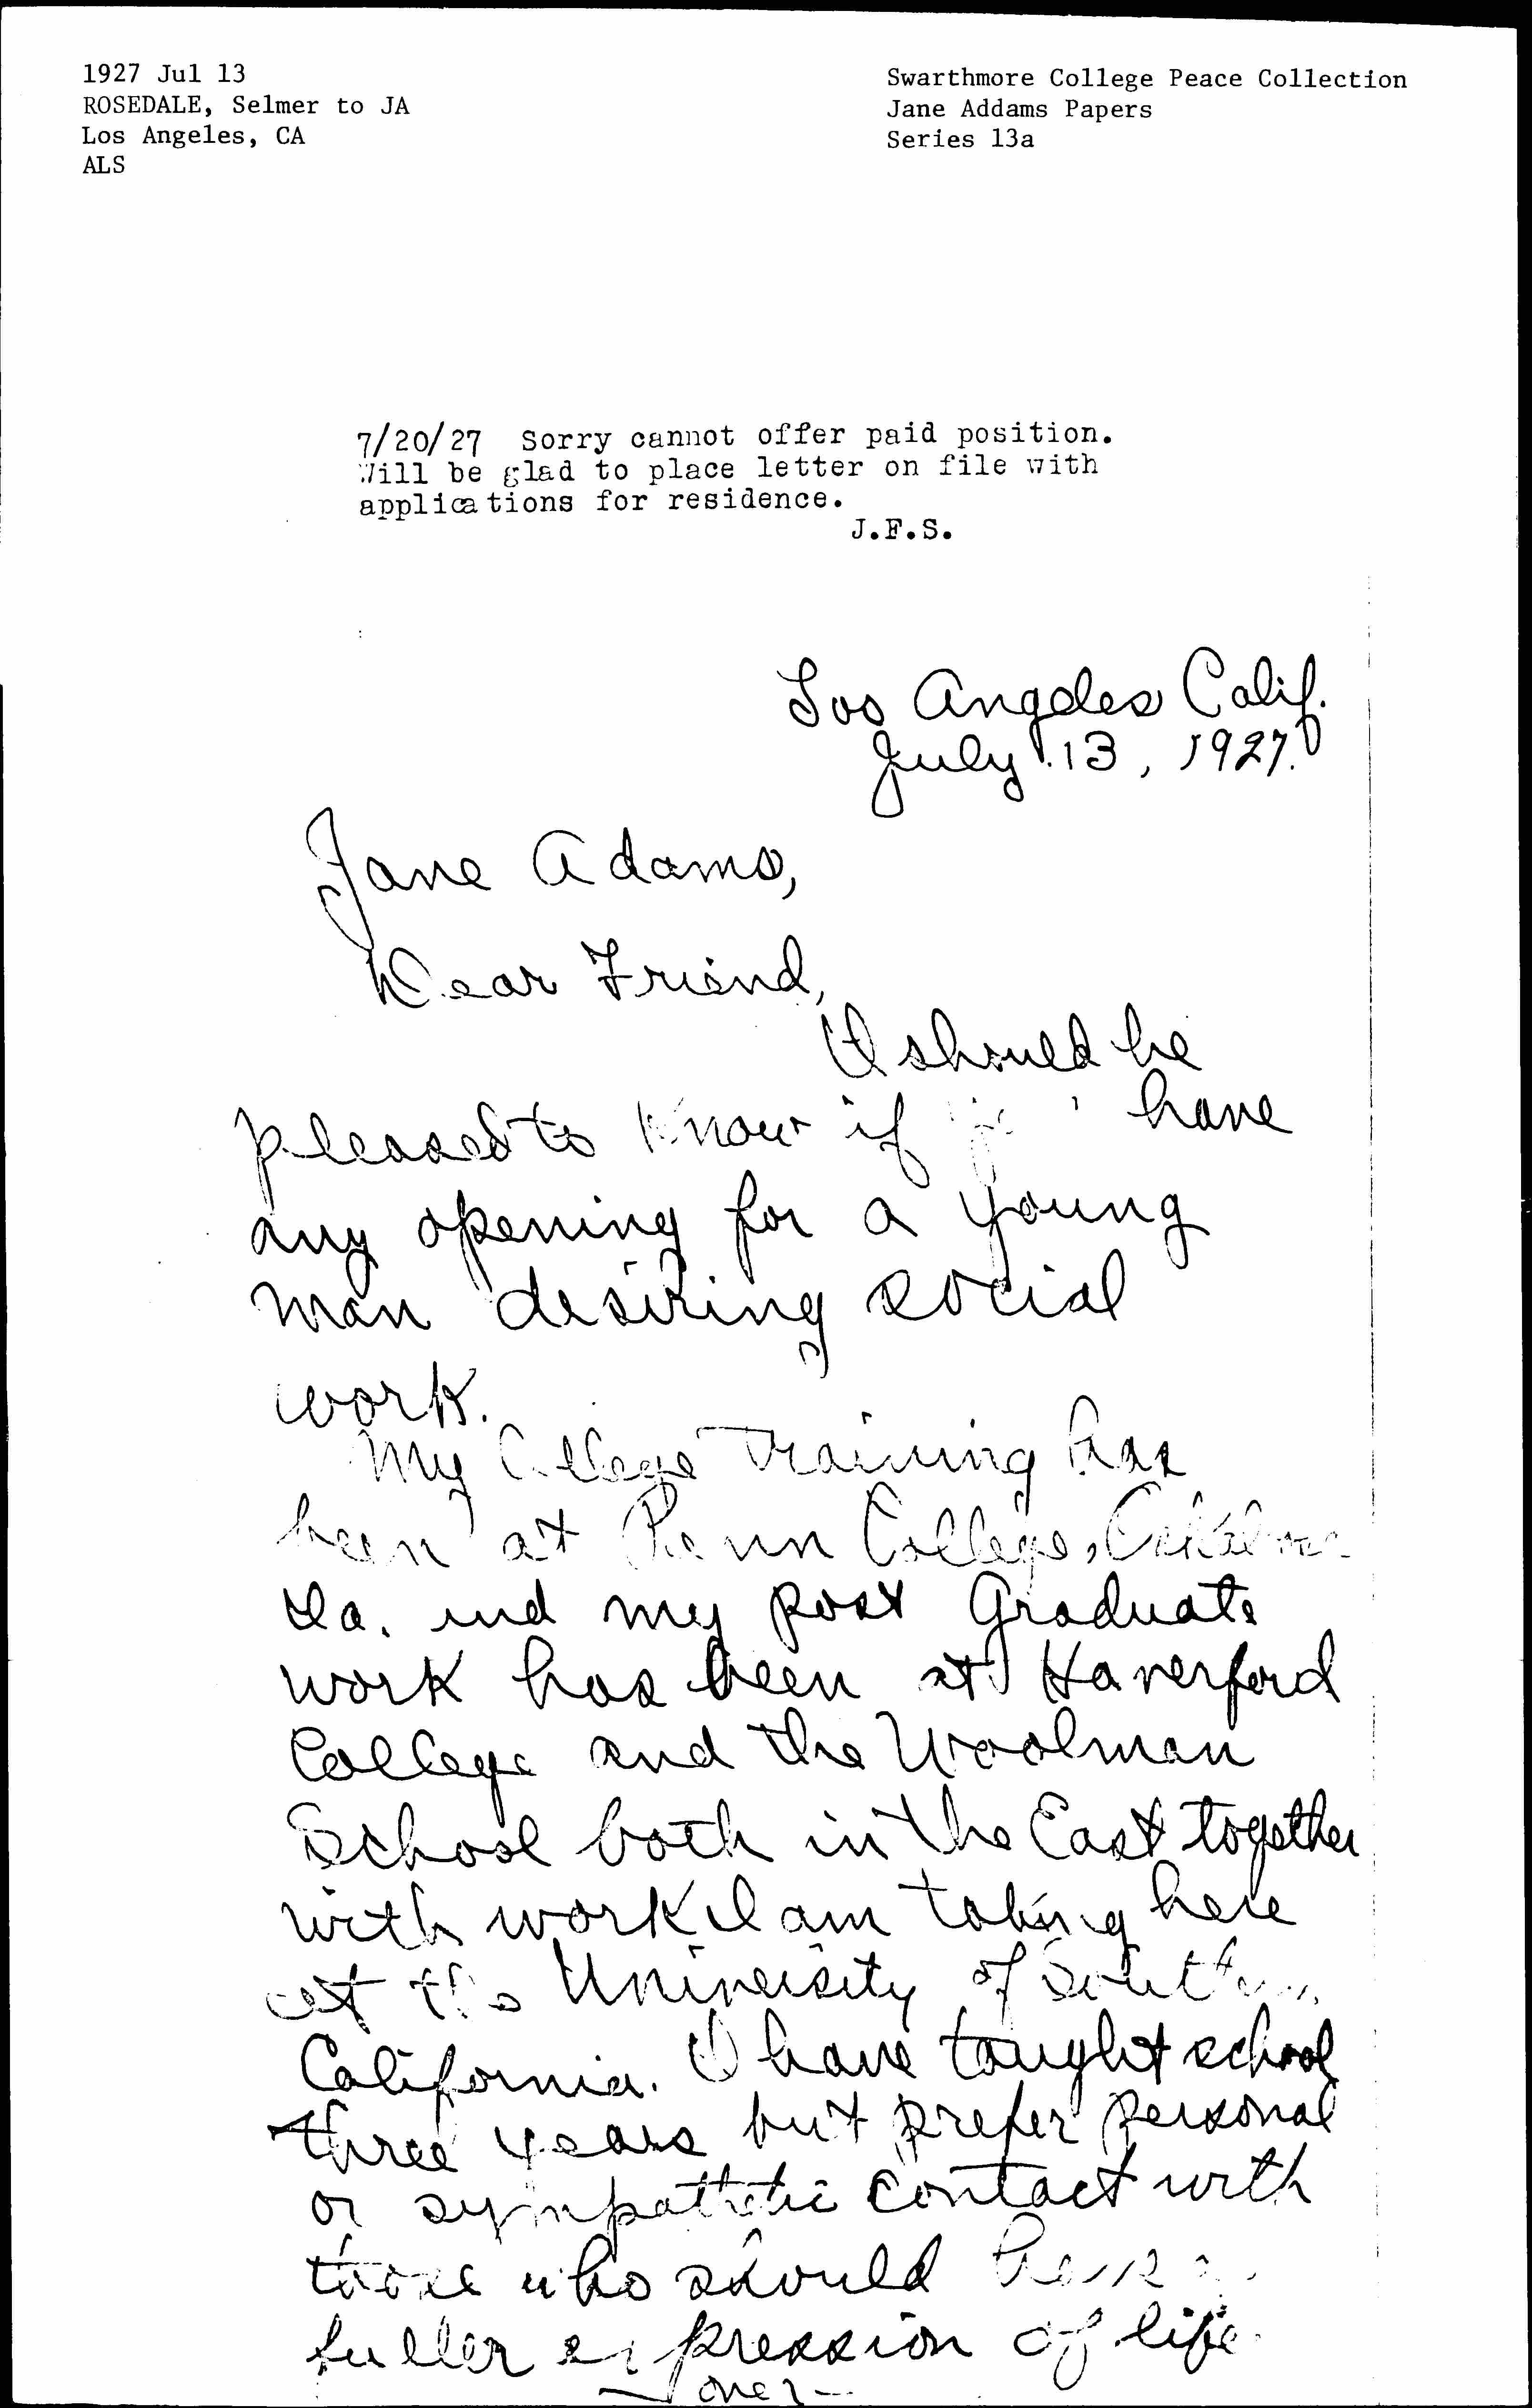 1927 Jul 13
ROSEDALE, Selmer to JA
Los Angeles, CA
ALS
Swarthmore College Peace Collection
Jane Addams Papers
Series 13a
7/20/27 Sorry cannot offer paid position.
Will be glad to place letter on file with
applications for residence.
J.F.S.
Los Angeles Calif.
July 13, 1927.
Jane Adams,
Dear Friend,
I should be
pleased to know if have
any opening for a young
man desiring social
work.
My College training has
been at Penn College, Oskaloosa
Ia. and my post Graduate
work has been at Haverford
College and the Woolman
School both in the East together
with work I am taking here
at the University of Southern
California. I have taught school
three years but prefer personal
or sympathetic contact with
those who should have
fuller expression of life.
over-